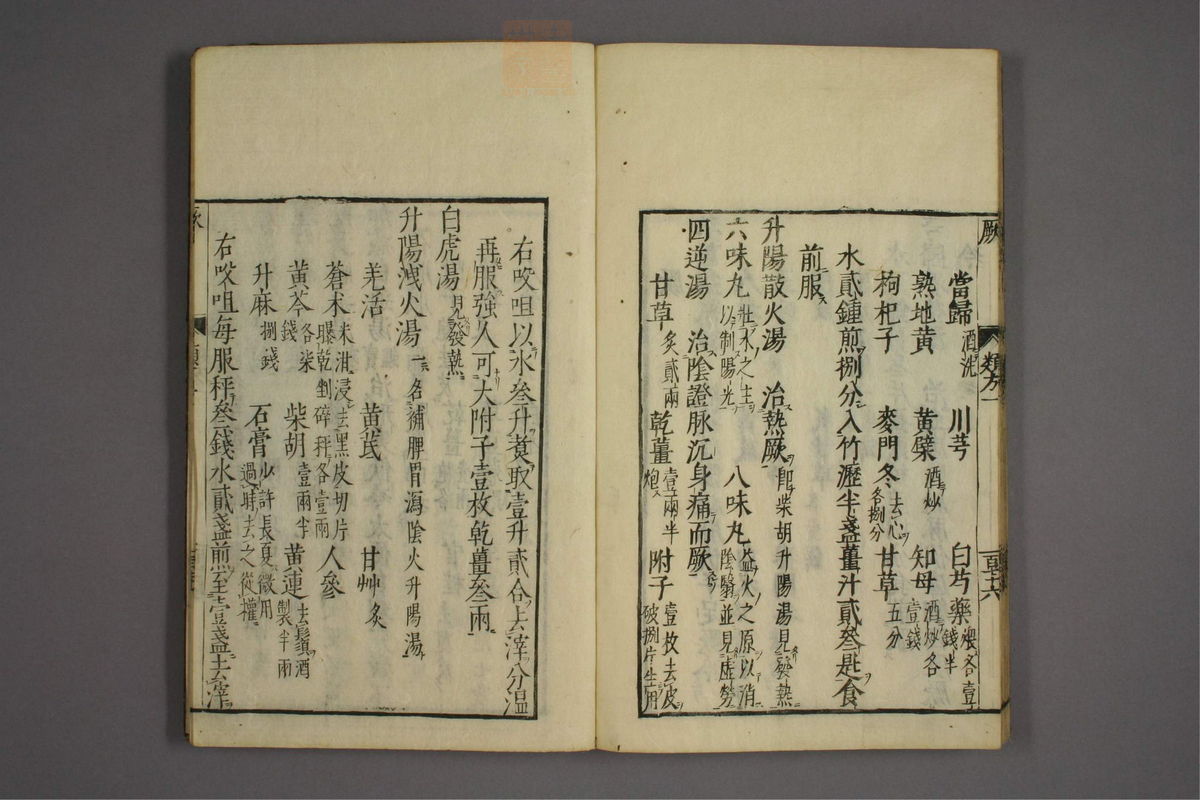 厥 類方一 百十六
當歸酒洗 川芎 白芍藥煨各壹錢半
熟地黄 黄蘗酒炒 知母酒炒各壹錢
枸杞子 麥門冬去心各捌分 甘草五分
水貳鍾煎捌分入竹瀝半盞薑汁貳叁匙食
前服
升陽散火湯 治熱厥即柴胡升陽湯見發熱
六味丸壯水之主以制陽光 八味丸益火之原以消陰翳並見虚勞
四逆湯 治陰證脉沉身痛而厥
甘草炙貳兩 乾薑壹兩半炮 附子壹枚去皮破捌片生用
右㕮咀以水叁升煑取壹升貳合去滓分温
再服強人可大附子壹枚乾薑叁兩
白虎湯見發熱
升陽洩火湯一名補脾胃瀉陰火升陽湯
羌活 黄芪 甘艸炙
蒼朮米泔浸去黒皮切片曝乾剉碎秤各壹兩 人參
黄芩各柒錢 柴胡壹兩半 黄連去鬚酒製半兩
升麻捌錢 石膏少許長夏微用過時去之從權
右㕮咀每服秤叁錢水貳盞煎至壹盞去滓